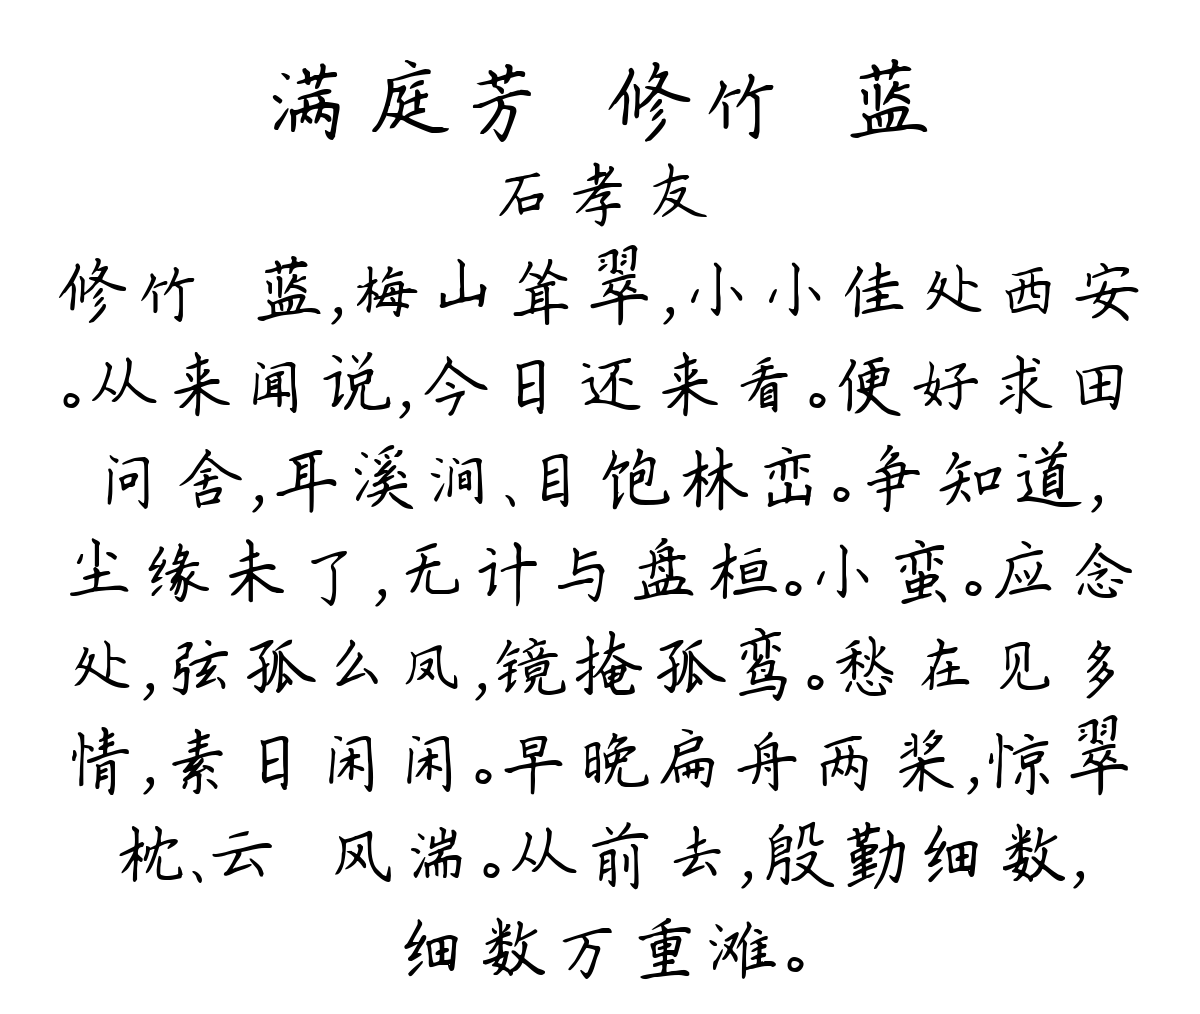 满庭芳 修竹 蓝
石孝友
修竹 蓝,梅山耸翠,小小佳处西安
。从来闻说,今日还来看。便好求田
问舍,耳溪涧、目饱林峦。争知道,
尘缘未了,无计与盘桓。小蛮。应念
处,弦孤么凤,镜掩孤鸾。愁在见多
情,素日闲闲。早晚扁舟两桨,惊翠
枕、云 风湍。从前去,殷勤细数,
细数万重滩。